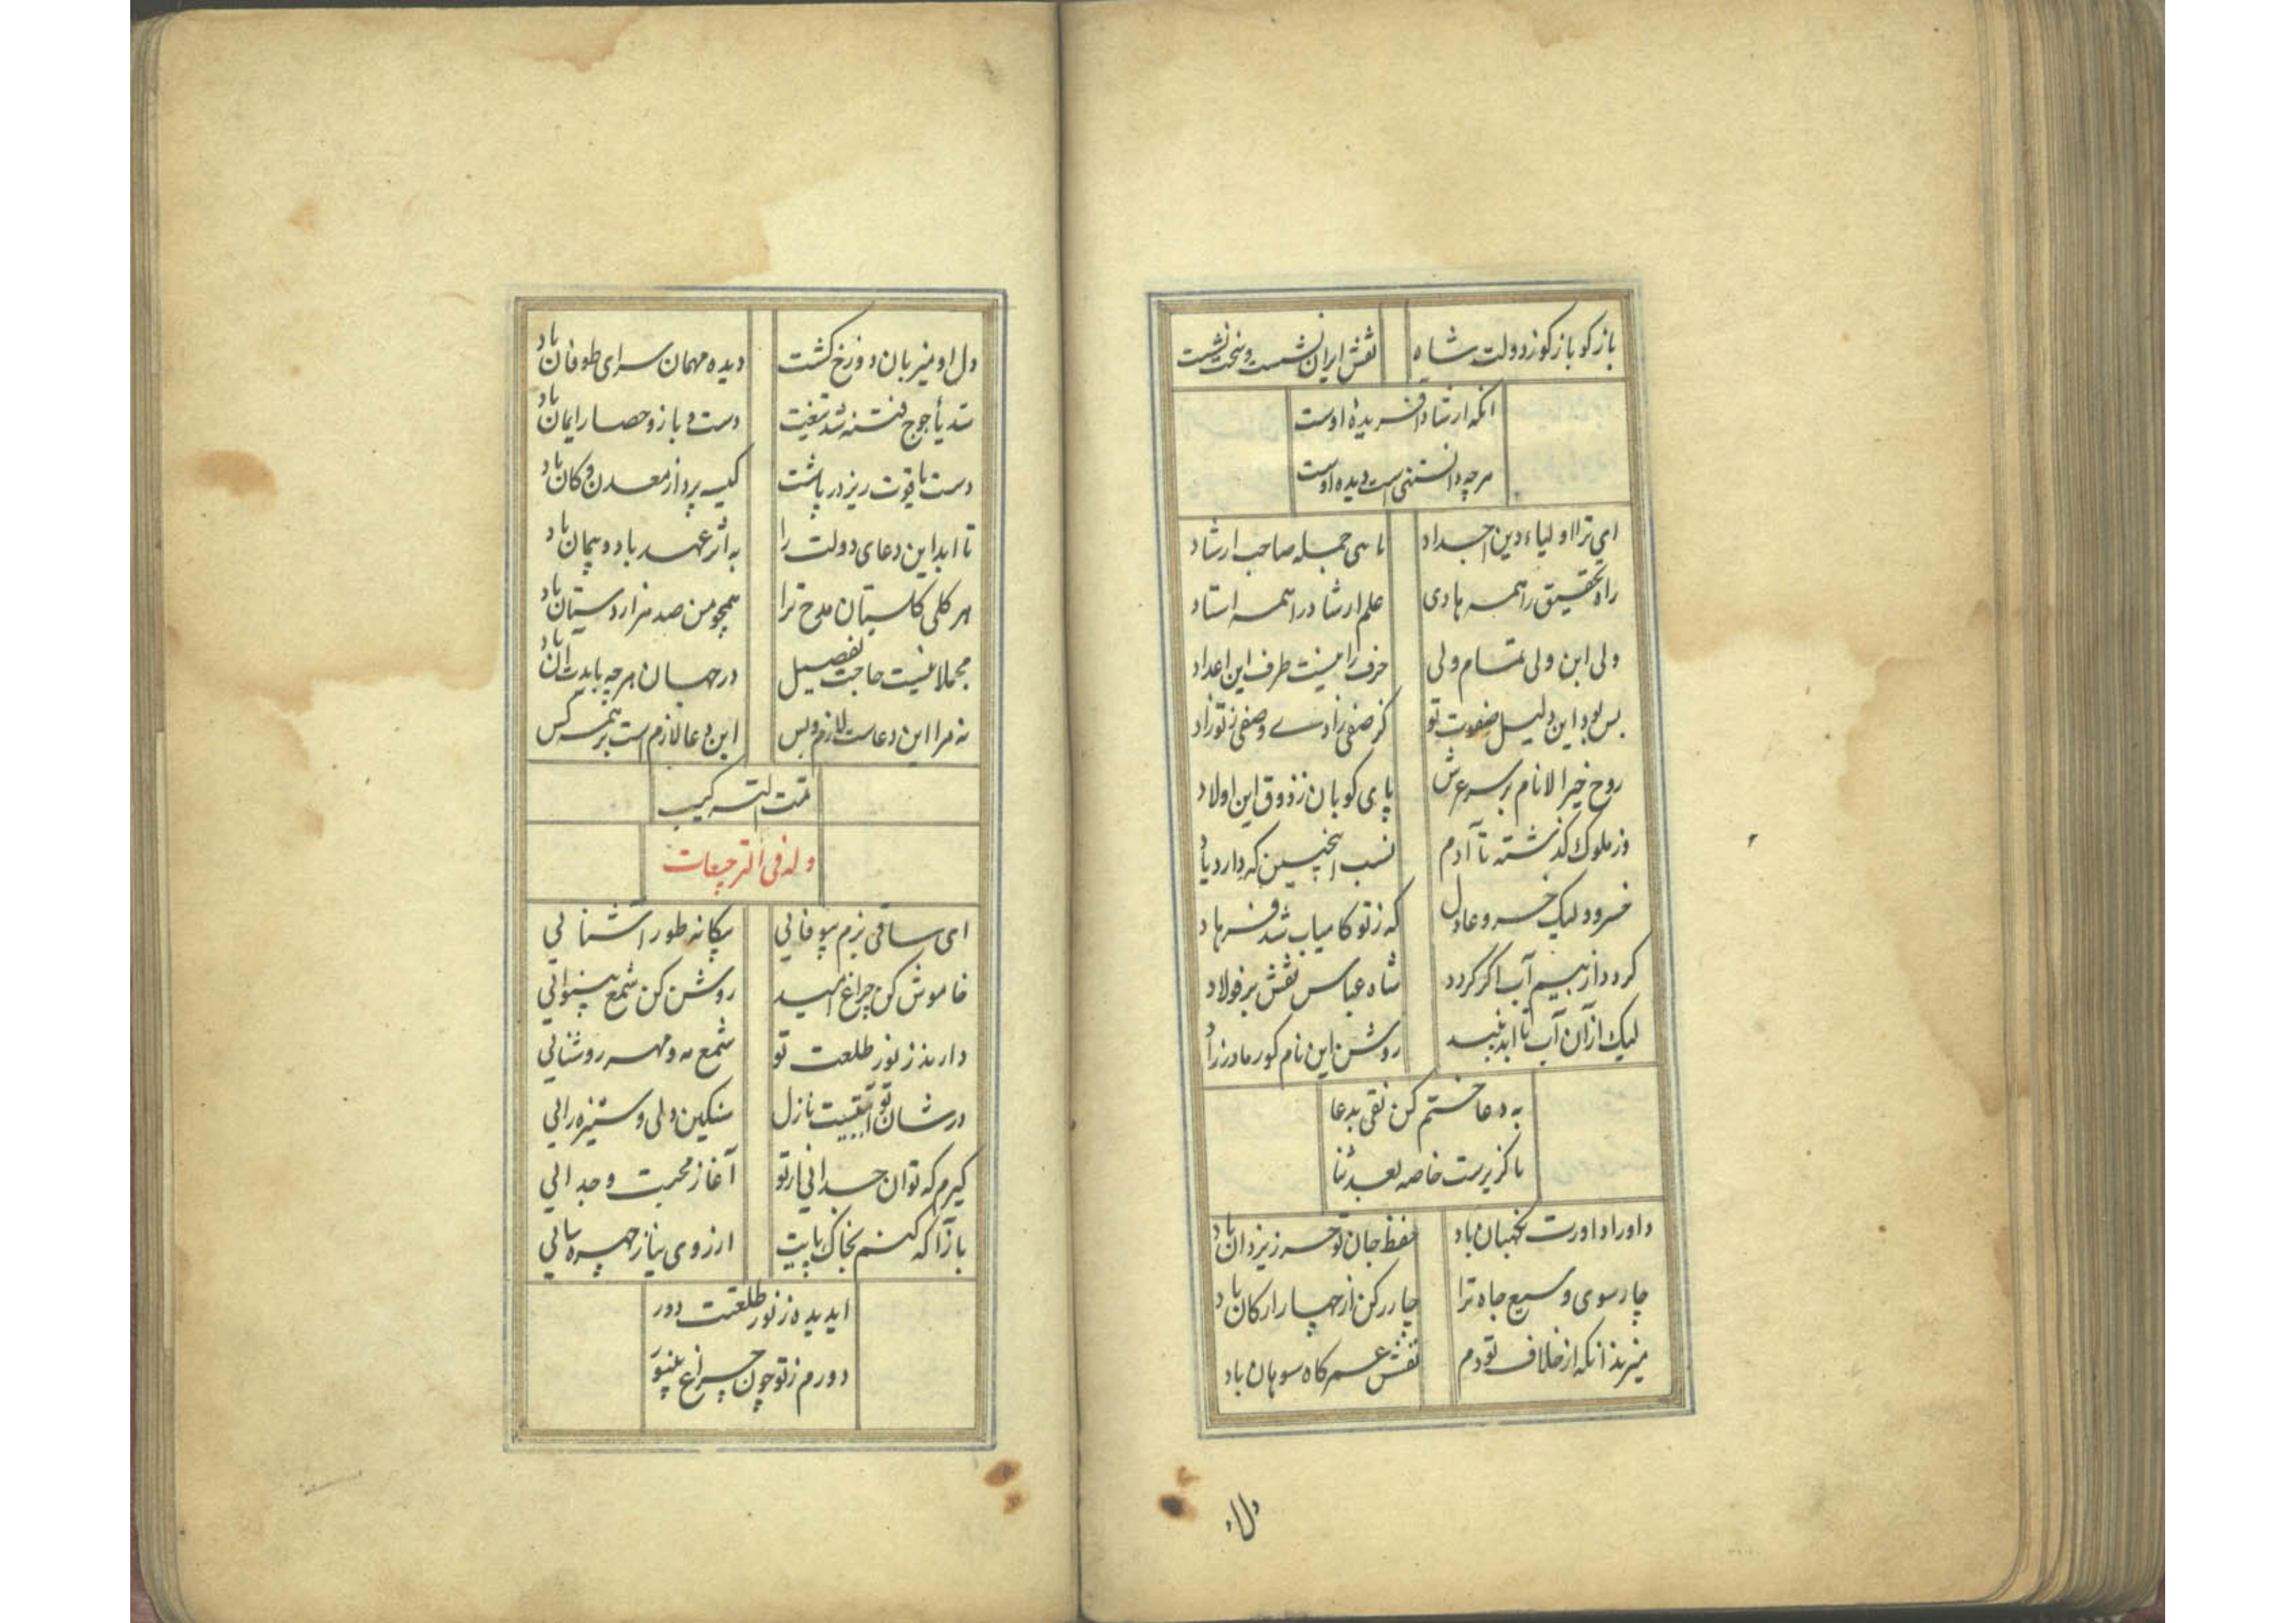 بازگو بازگو ز دولت شاه نقش ایران نشست و سخت نشست
انکه ارشاد افریده اوست
هرچه دانستنی است دیده اوست
ای ترا اولیاء دین اجداد تا علی جمله صاحب ارشاد
راه تحقیق را همه هادی علم ارشاد را همه استاد
ولی ابن ولی تمام ولی حرف را نیست طرف این اعداد
بس بود این دلیل صفوت تو کز صفی زادی و صفی ز تو زاد
روح خیر الانام بر سر عرش پای کوبان ز ذوق این اولاد
وز ملوک گذشته تا آدم نسب اینچنین که دارد یاد
خسرود لیک خسرو عادل که ز تو کامیاب شد فرهاد
گردد از بیم آب اگر گردد شاه عباس نقش بر فولاد
لیک از آن آب تا ابد روشن این نام کور مادرزاد
به دعا ختم کن نقی بدعا
ناگزیرست خاصه بعد ثنا
داورا داورت نگهبان باد حفظ جان تو حرز یزدان باد
چارسوی وسیع جاه ترا چار رکن از چهار ارکان باد
میزند انکه از خلاف تو دم نفسش عمر کاه سوهان باد
دل او
دل او میزبان دوزخ گشت دیده مهمان سرای طوفان باد
سد یأجوج فتنه شد تیغت دست و بازو حصار ایمان باد
دست یاقوت ریز در پاشت کیسه پرداز معدن و کان باد
تا ابد این دعای دولت را به اثر عهد باد و پیمان باد
هر گلی گلستان مدح ترا همچو من صد هزار دستان باد
مجملا نیست حاجت تفصیل در جهان هرچه بایدت ان باد
نه مرا این دعاست لازم و بس این دعا لازم است بر همه کس
تمت الترکیب
وله فی الترجیعات
ای ساقی بزم بیوفائی بیگانه طور اشنائی
خاموش کن چراغ امید روشن کن شمع بینوائی
دارند ز نور طلعت تو شمع مه و مهر روشنائی
در شان تو آیتیست نازل سنگین دلی و ستیزه رائی
گیرم که توان جدائی از تو آغاز محبت و جدائی
بازآ که کنم بخاک پایت ارزوی نیاز چهره سائی
ای دیده ز نور طلعتت دور
دورم ز تو چون چراغ بینور